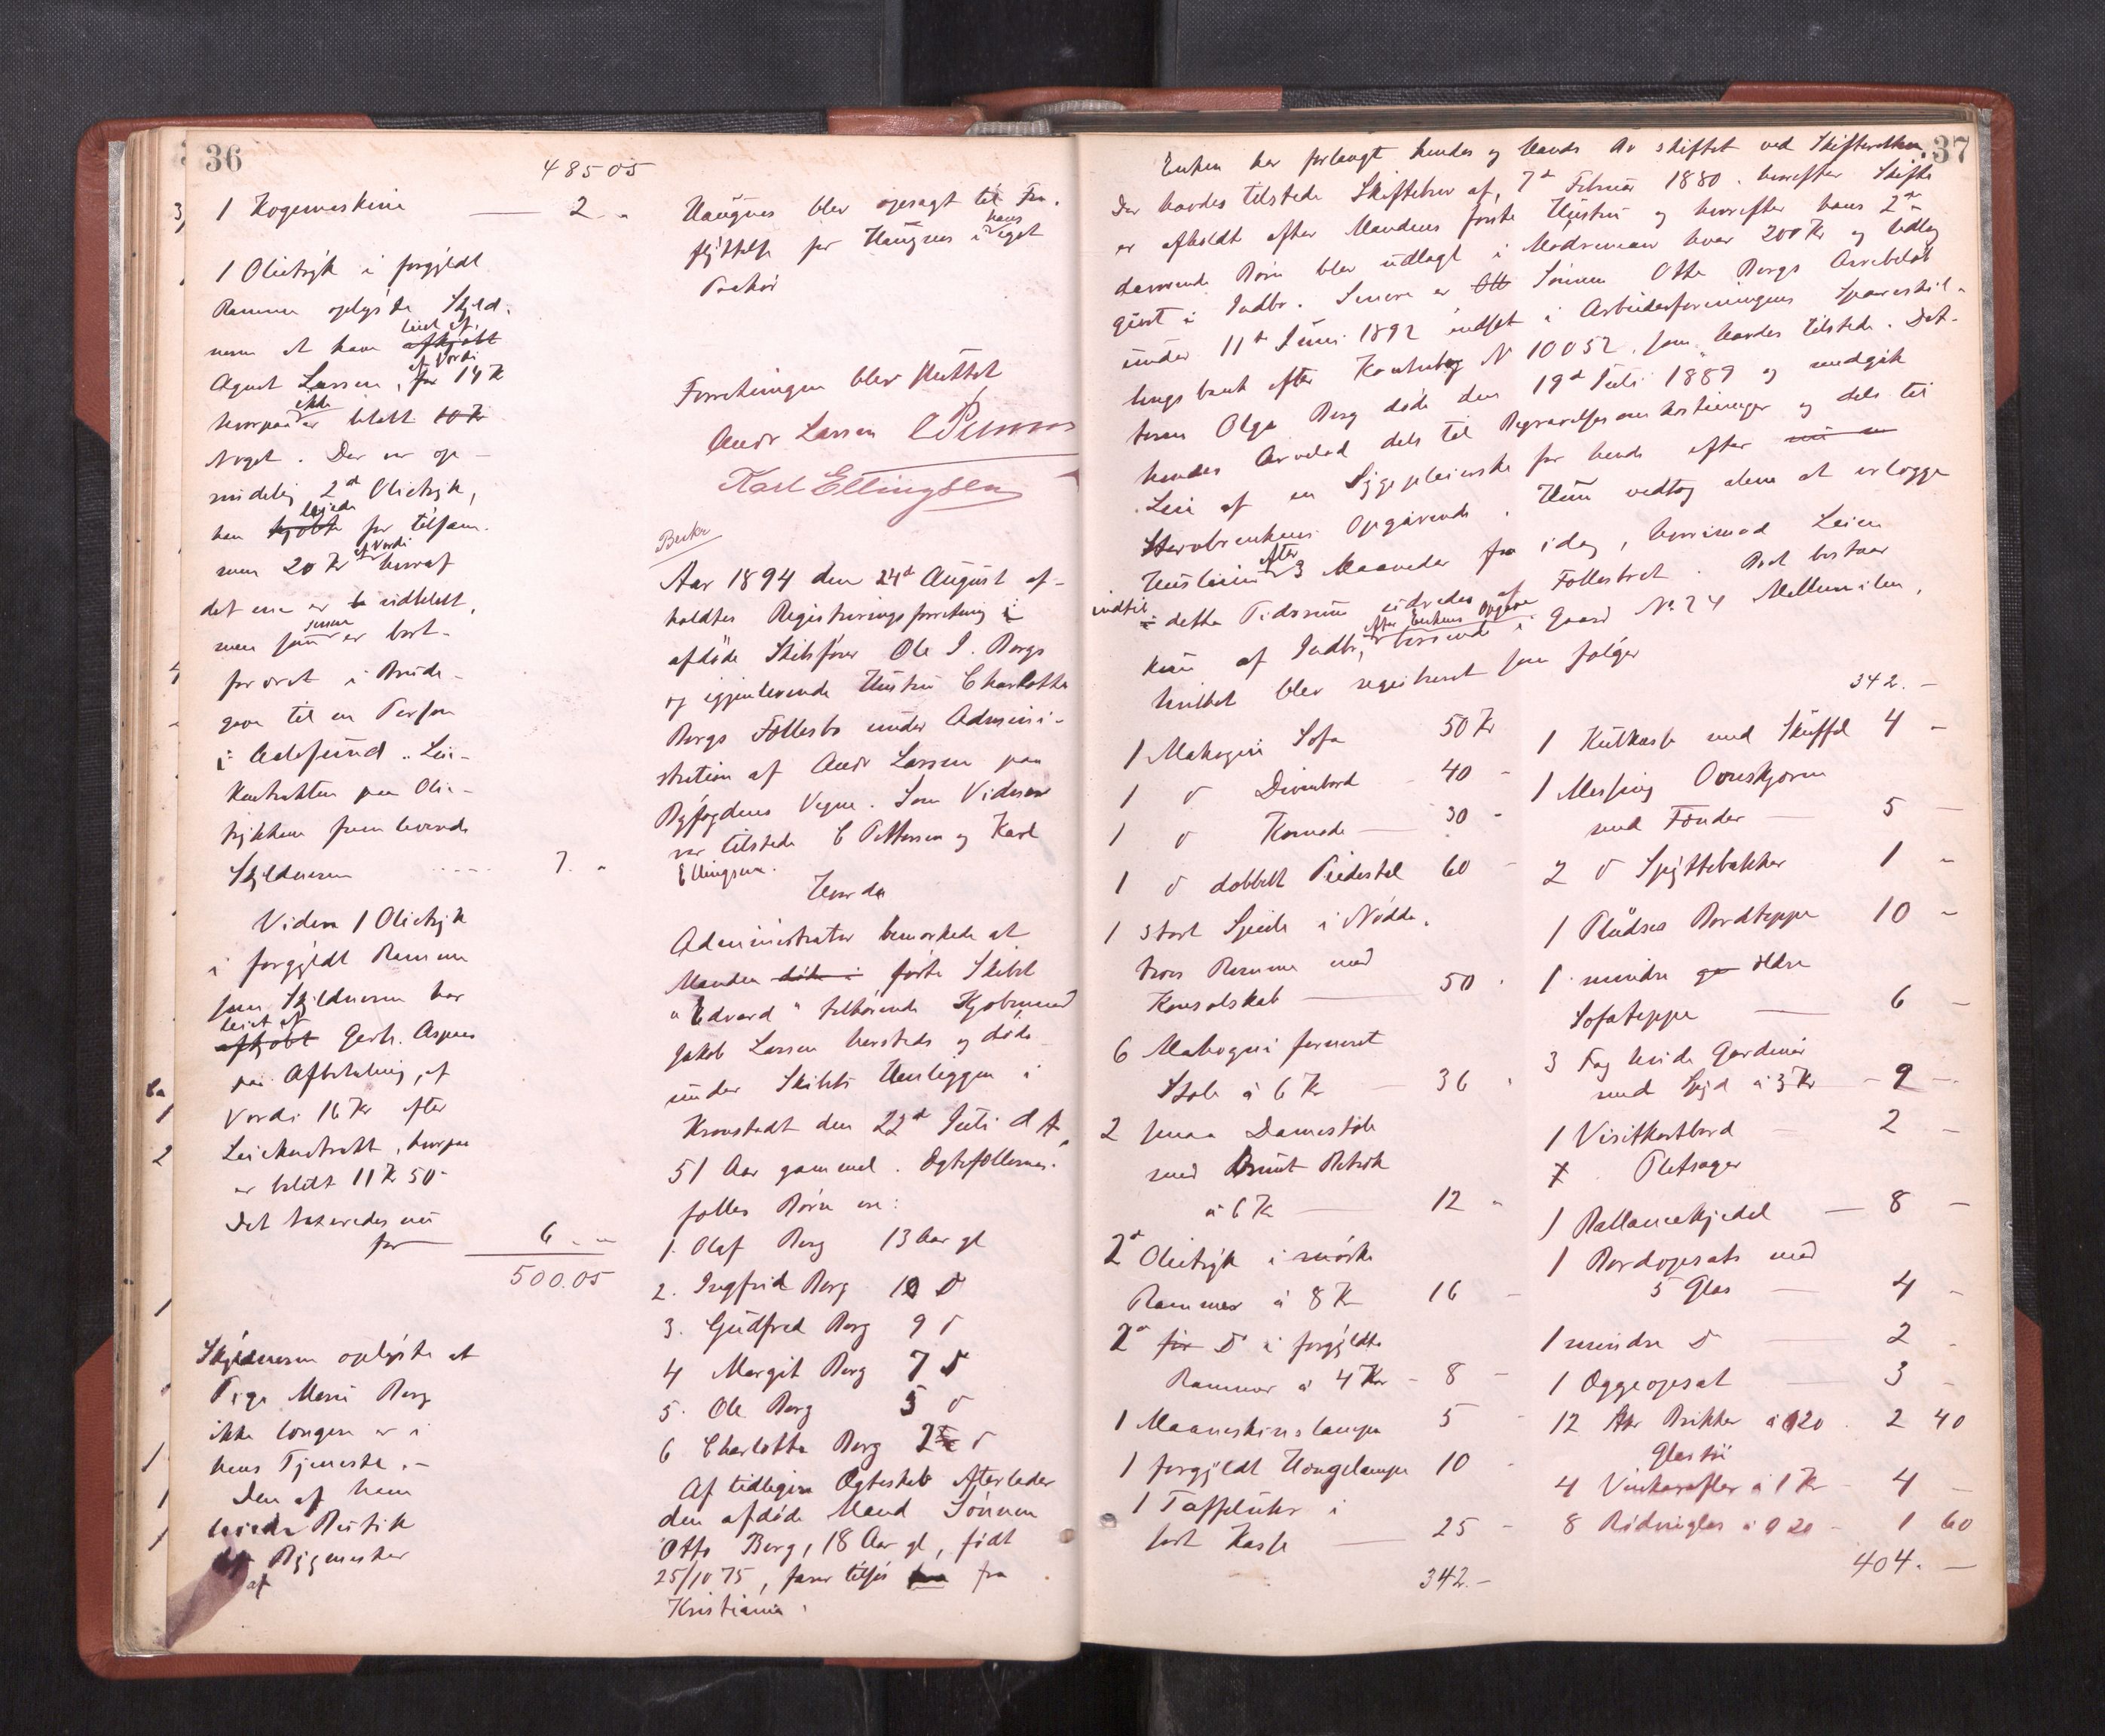 36
48505
1 Kogemaskine — 2 "
1 Olietryk i forgyldt
Ramme oplyste Skyld-
neren at have afkjøbt
leiet af
August Larsen, for 14 K
af Værdi
hvorpaa er betalt 10 Kr
ikke
Noget. Der var op-
rindelig 2de Olietryk,
han kjøbte for tilsam-
leiede
men 20 Kr hvoraf
af Værdi
det ene er udbetalt,
men som er bort-
senere
foræret i Brude-
gave til en Person
i Aalesund. Leie-
Kontrakten paa Olie-
trykkene fremlevered
Skyldneren ..... 7. "
Videre 1 Olietryk
i forgyldt Ramme
som Skyldneren har
leiet af
afkjøbt Gerh. Aspnes
paa Afbetaling, af
Værdi 16 Kr efter
Leiekontrakt, hvorpaa
er betalt 11 Kr 50
Det taxeredes nu
for — 6. "
500.05
Skyldneren oplyste at
Pige Marie Berg
ikke længere er i
hans Tjeneste.-
Den af ham
leiede Butik
Bygmester
af
Haugnes blev opsagt til Fra-
flyttelse for Haugnes i eget
hans
Paahør
Forretningen blev sluttet
Andr Larsen C Petterson
Karl Ellingsen
Beskr
Aar 1894 den 24de August af-
holdtes Registreringsforretning i
afdøde Skibsfører Ole I. Bergs
og igjenlevende Hustru Charlotte
Bergs Fællesbo under Admini-
stration af Andr Larsen paa
Byfogdens Vegne. Som Vidner
var tilstede C Pettersen og Karl
Ellingsen.
Hvorda
Administrator bemærkede at
Manden døde i førte Skibet
"Edvard" tilhørende Kjøbmand
Jakob Larsen hersteds og døde
under Skibets Henliggen i
Kronstadt den 22de Juli d A,
51 Aar gammel. Ægtefællernes
fælles Børn ere:
1. Olaf Berg 13 Aar gl
2. Ingfrid Berg 10 d
3. Gudfred Berg 9 d
4 Margit Berg 7 d
5. Ole Berg 5 d
6 Charlotte Berg 2 d
Af tidligere Ægteskab efterleder
den afdøde Mand Sønnen
Otto Berg, 18 Aar gl, født
25/10 75, farer tilsjøs fra
Kristiania.
37
Enken har forlangt hendes og Mands Bo skiftet ved Skifteretten.
Der havdes tilstede Skiftebrev af 7de Februar 1880. hvorefter Skifte
er afholdt efter Mandens første Hustru og hvorefter hans 2de
daværende Børn blev udlagt i Mødrenearv hver 200 Kr og Udlæg
givet i Indbo. Senere er Ott Sønnen Otto Bergs Arvebeløb
under 11te Juni 1892 indsat i Arbeiderforeningens Spareskil-
lingsbank efter Kontrabog N 10052, som havdes tilstede. Dat-
teren Olga Berg døde den 19de Juli 1889 og medgik
hendes Arvelod dels til Begravelsesomkostninger og dels til
Leie af en Sygepleierske for hende efter
Stervboenkens Opgivende. Hun vedtog alene at erlægge
Husleien 3 Maaneder fra idag, hvorimod Leien
efter
indtil dette Tidsrum udredes af Fællesboet. Boet bestaar
kun af Indbo, beroende i Gaard No 24 Mellemveien,
efter Enkens Opgave
hvilket blev registreret som følger
1 Mahogni Sofa 50 Kr
1 d Divanbord - 40 -
1 d Komode — 30 -
1 d dobbelt Piedestal 60 -
1 stort Speil i Nødde-
træs Ramme med
Konsolskab — 50 -
6 Mahogni ferneret
Stole á 6 Kr — 36 -
2 smaa Damestole
med Brunt Betræk
á 6 Kr — 12 -
2de Olietryk i mørke
Rammer á 8 Kr 16 -
2de for D i forgyldte
Rammer á 4 Kr - 8 -
1 Maaneskinslampe 5 -
1 forgyldt Hængelampe 10 -
1 Taffeluhr i
sort Kasse — 25 -
342.-
342.-
1 Kulkasse med Skuffel 4 -
1 Messing Ovnskjærm
med Fender — 5 -
2 d Spyttebakker 1 -
1 Pludses Bordteppe 10 -
1 mindre ældre
Sofateppe — 6 -
3 Fag hvide Gardiner
med Spyd á 3 Kr - 9 -
1 Visitkortbord - 2 -
Pletsager
1 Ballancekjedel — 8 -
1 Bordopsats med
5 Glas — 4 -
1 mindre D — 2 -
1 Æggeopsat — 3 -
12 Brikker á 020 - 2 40
Glastøi
4 Vinkarafler á 1 Kr - 4 -
8 Rødvinglas á 0 20 - 1 60
404. —